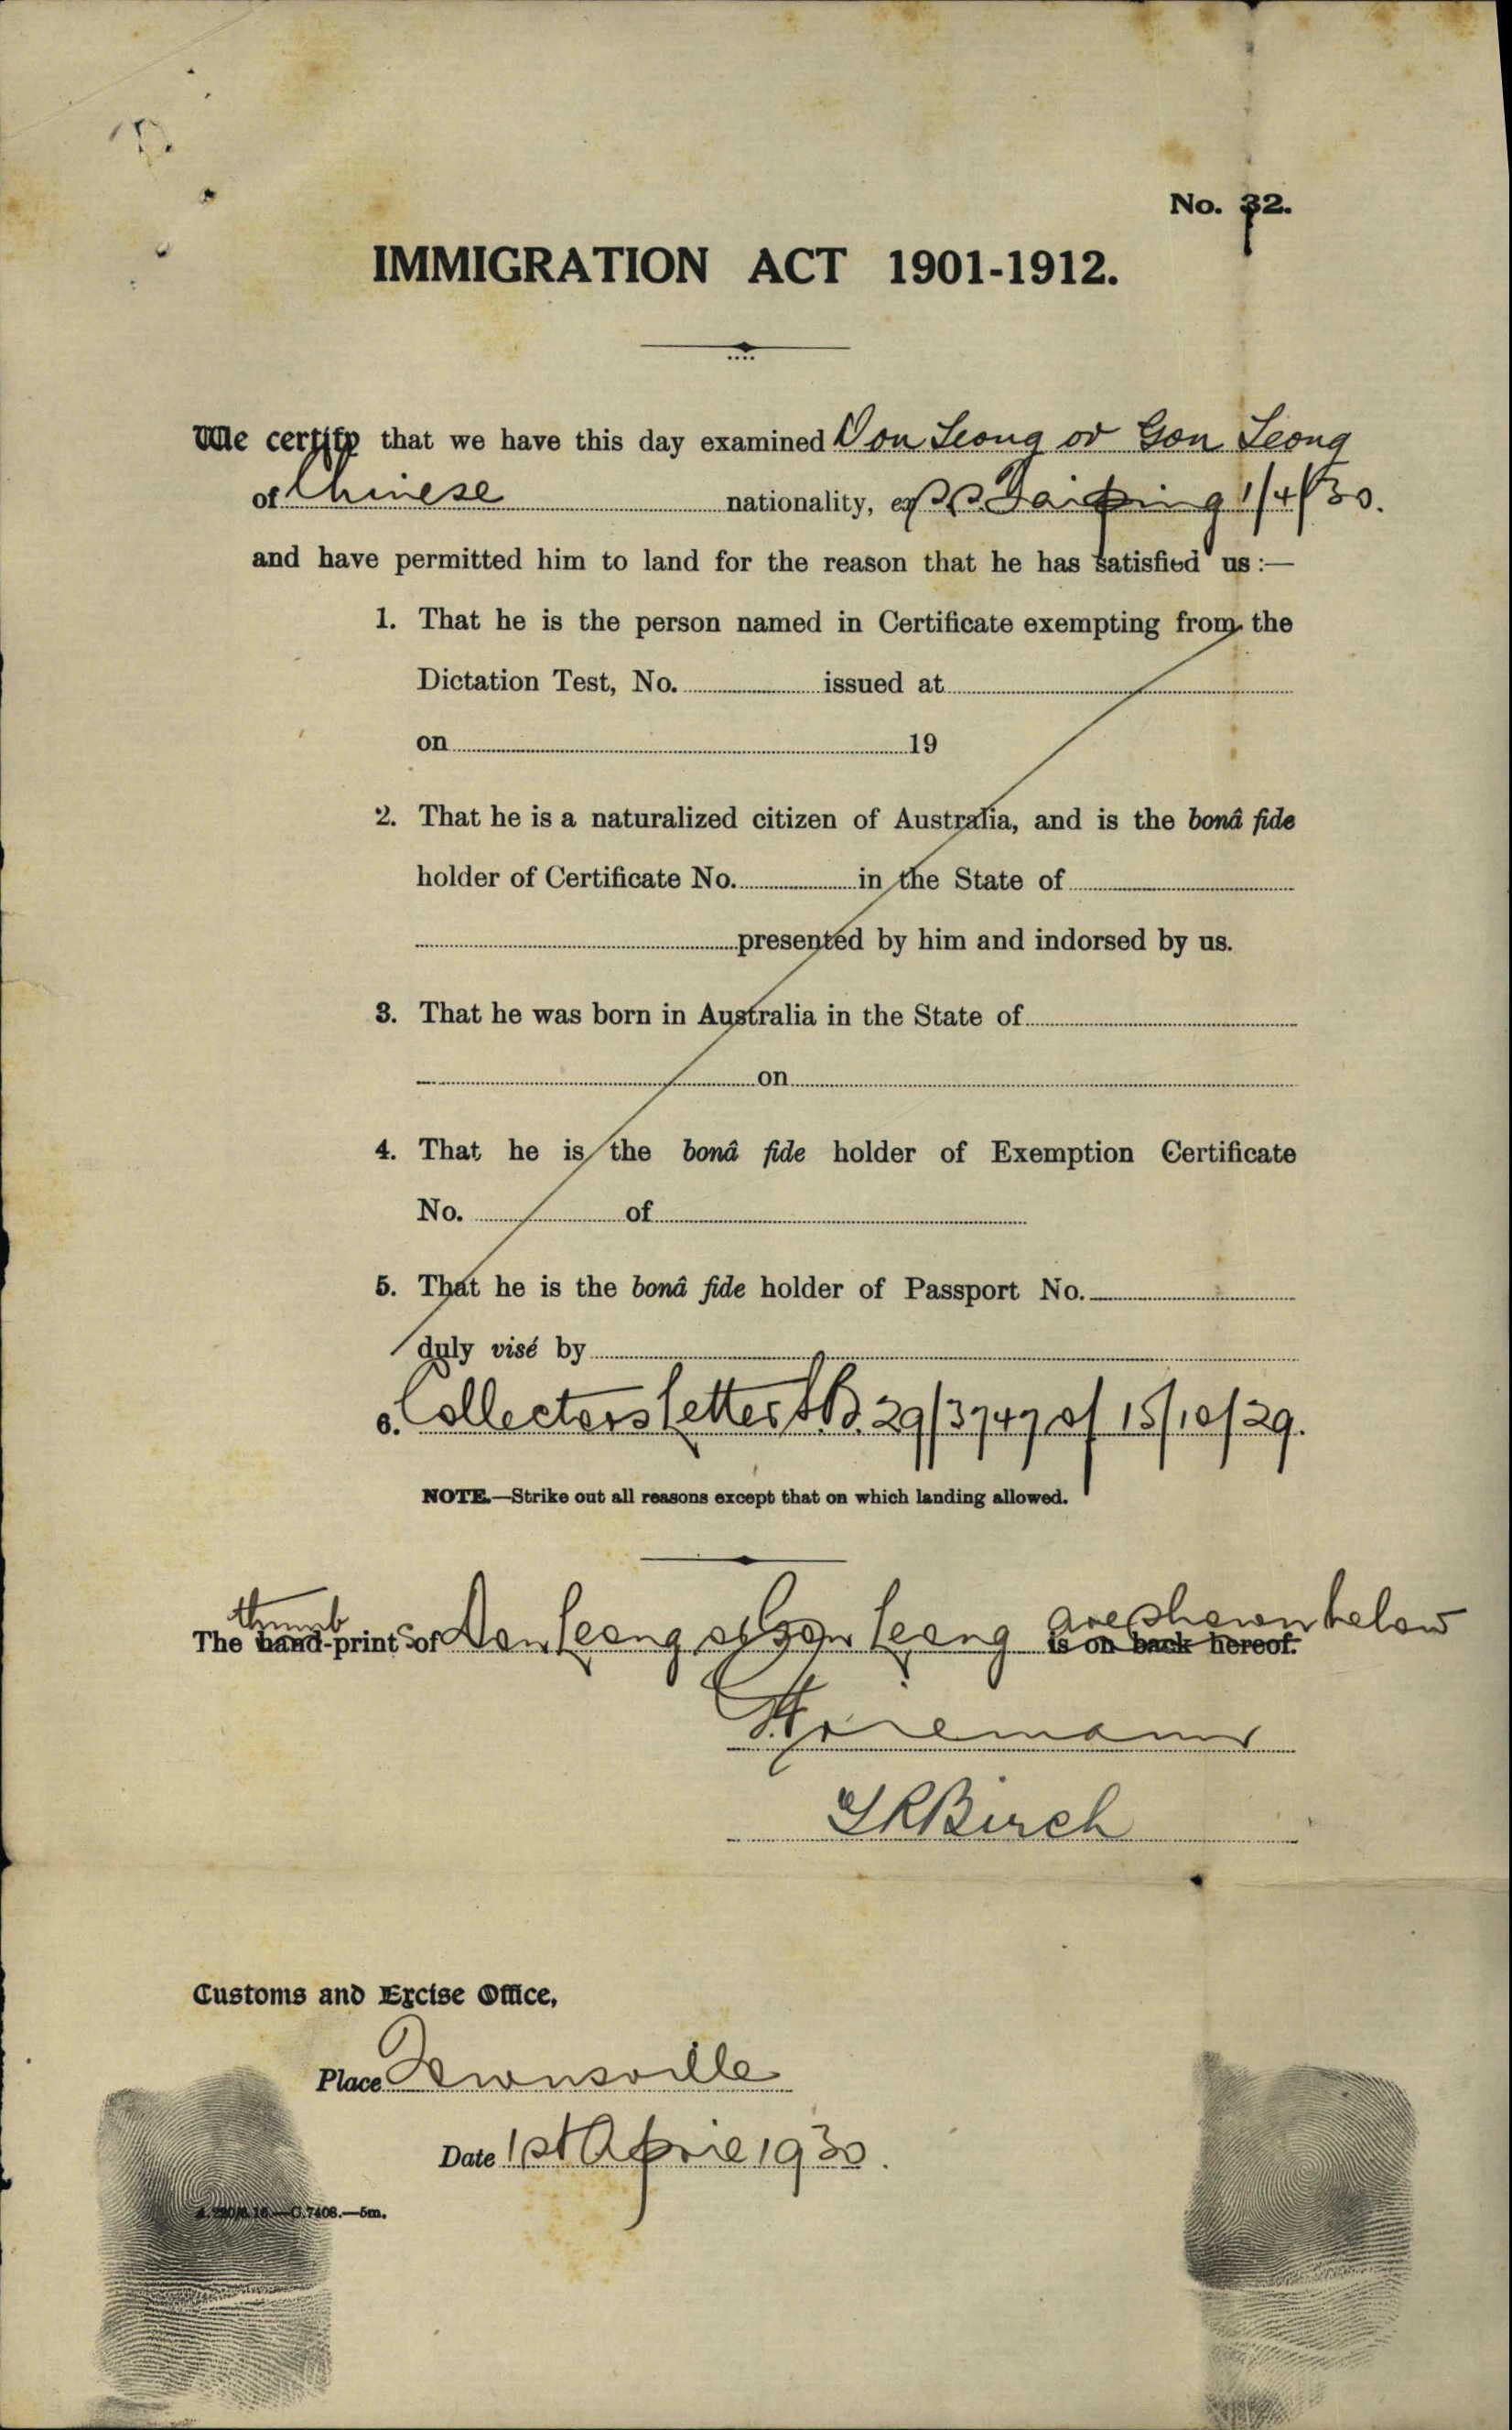 No. 32.
IMMIGRATION ACT 1901-1912.
We certify that we have this day examined Don Leong or Gon Leong
of Chinese nationality, ex S.S. Taiping 1/4/30.
and have permitted him to land for the reason that he has satisfied us :—
1. That he is the person named in Certificate exempting from the
Dictation Test, No. issued at
on 19
2. That he is a naturalized citizen of Australia, and is the bonâ fide
holder of Certificate No. in the State of
presented by him and indorsed by us.
3. That he was born in Australia in the State of
on
4. That he is the bonâ fide holder of Exemption Certificate
No. of
5. That he is the bonâ fide holder of Passport No.
duly visé by
6. Collectors letter 29/3747 of 15/10/29.
NOTE.—Strike out all reasons except that on which landing allowed.
thumb are shown below
The hand-prints of Don Leong or Gon Leong is on back hereof.
Birch
Customs and Excise Office,
Place Townsville
Date 1st April 1930.
C.7408.—5m.